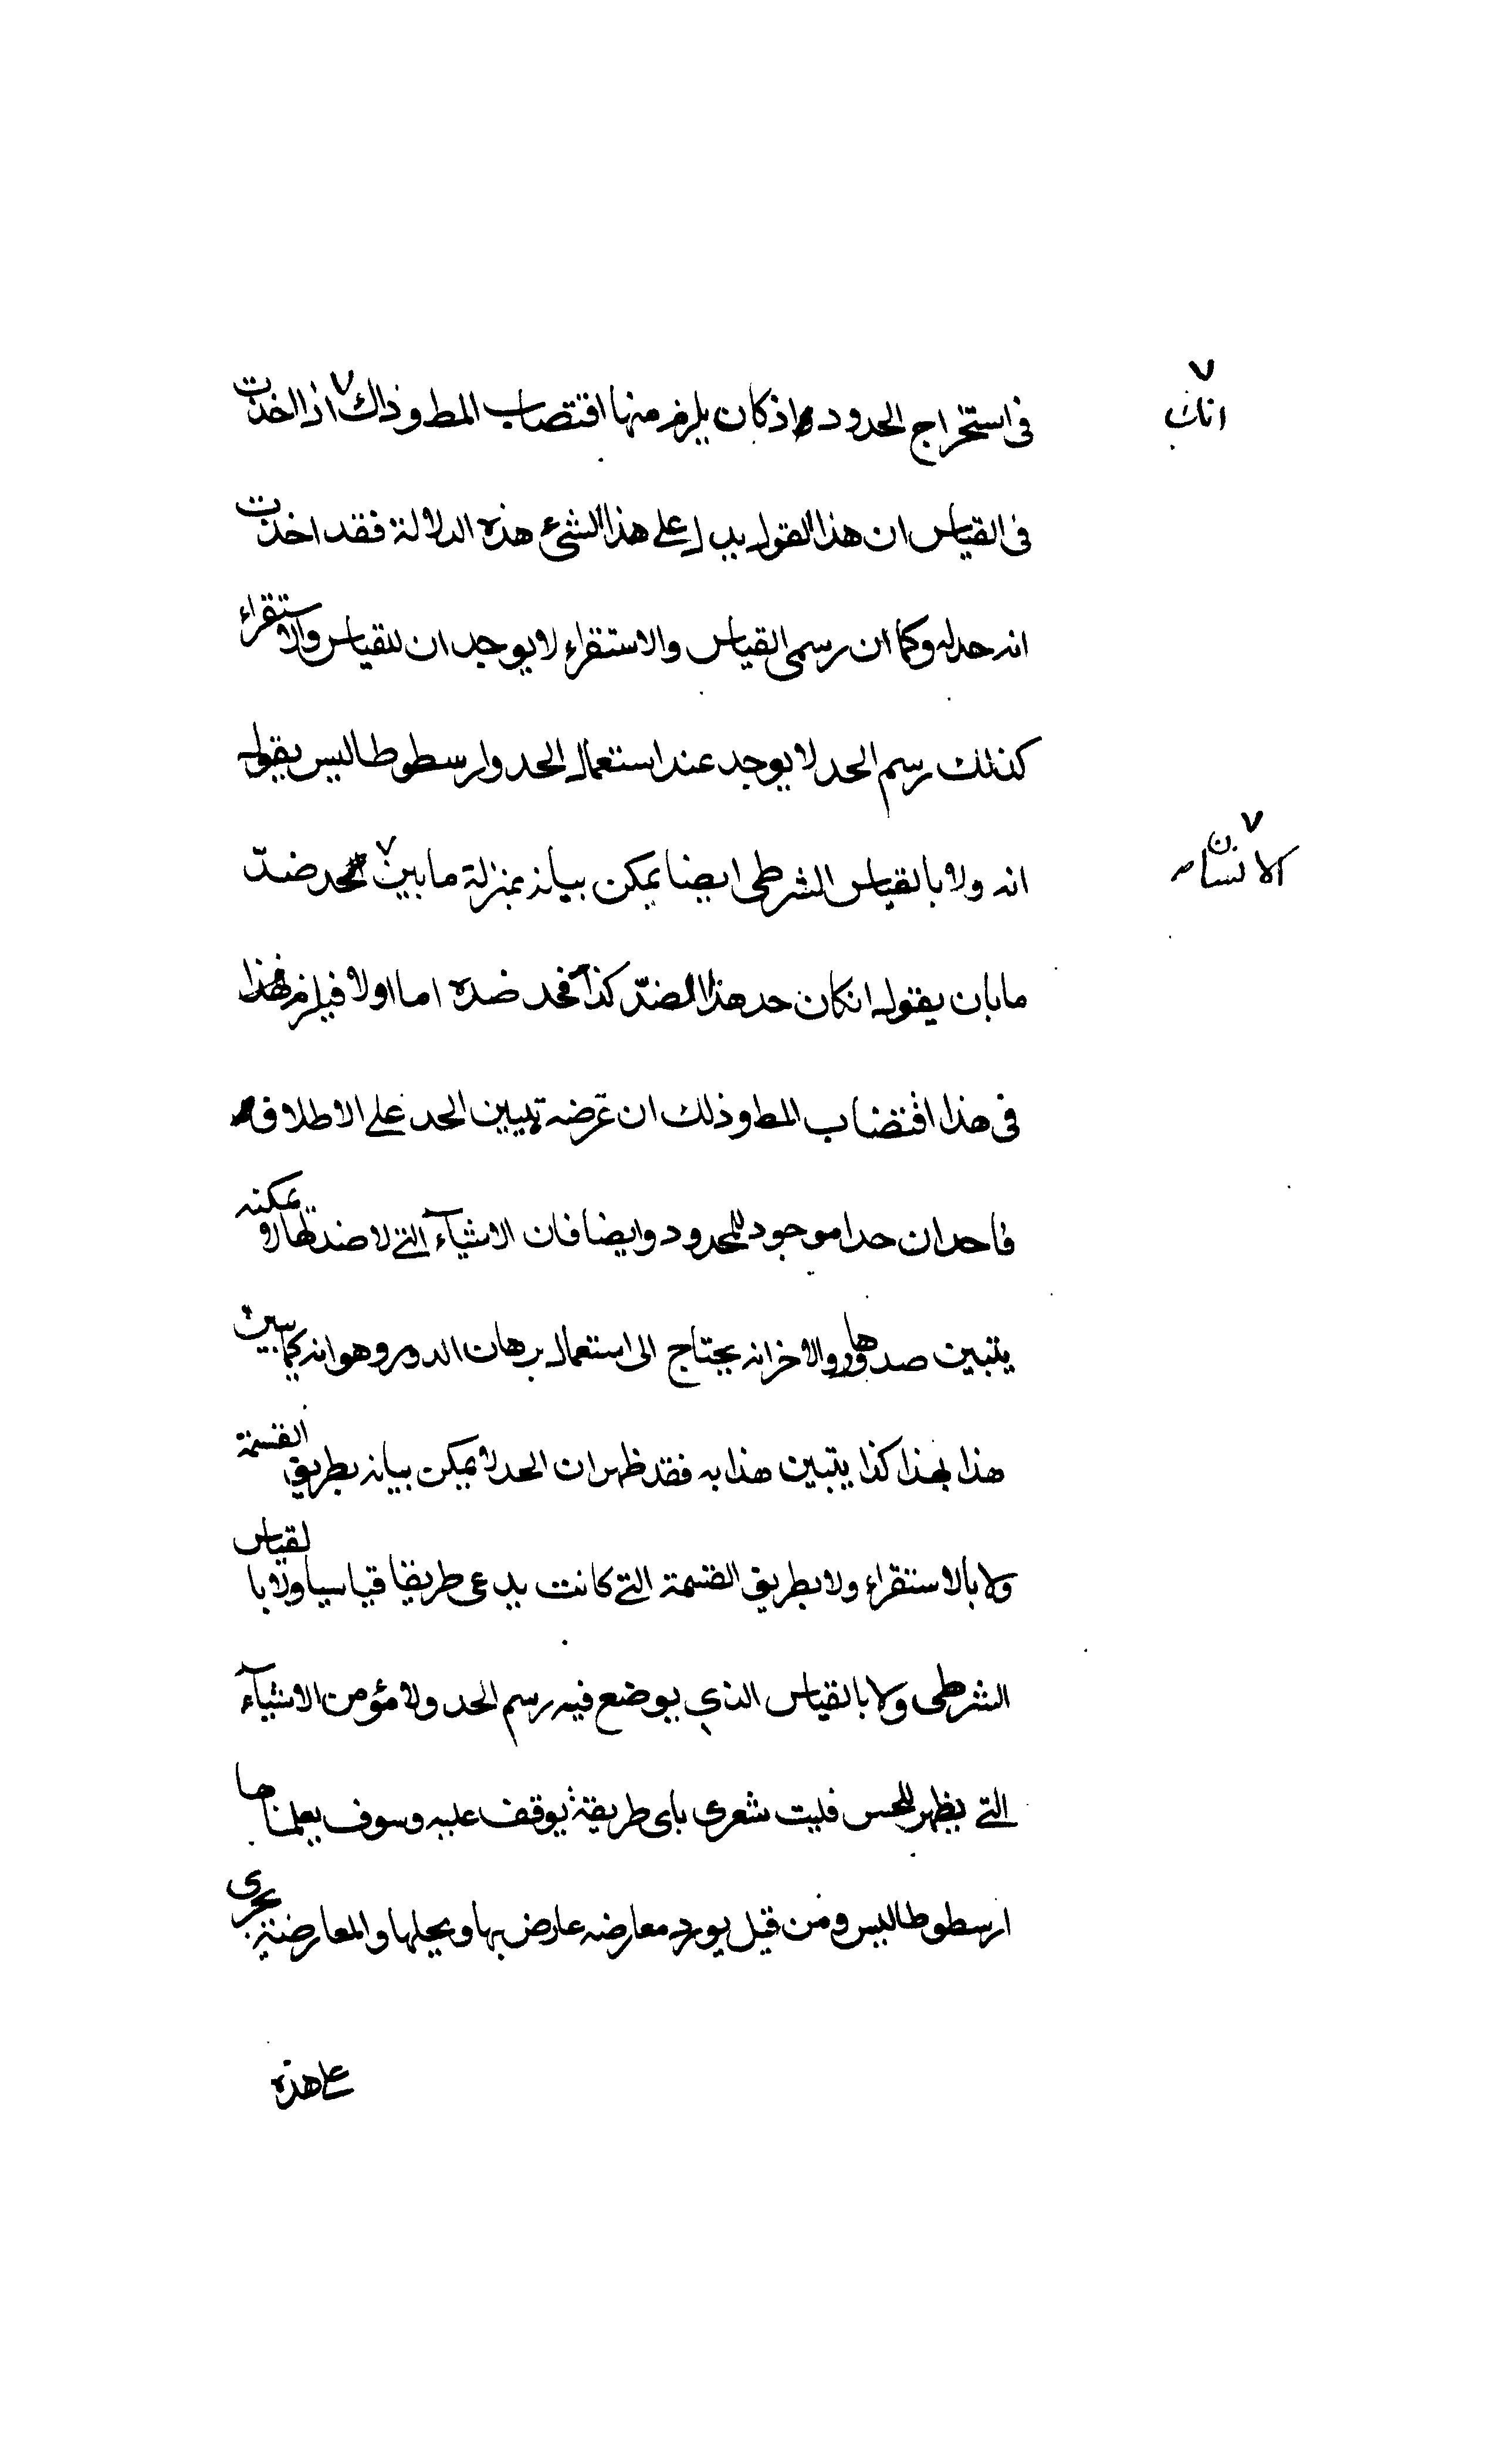 فى استخراج الحدود اذ كان يلزم منها اقتصاب المط وذاك اذا اخذت
انك
فى القياس ان هذا القول يدل على هذا الشىء هذه الدلالة فقد اخذت
انه حد له وكما ان رسمى القياس والاستقراء لا يوجد ان للقياس والاستقراء
كذلك رسم الحد لا يوجد عند استعمال الحد وارسطوطاليس يقول
انه ولا بالقياس الشرطى ايضا يمكن بيانه بمنزلة ما يبين حد ضدّ
الانسان
ما بان يقول انكان حد هذا الضدّ كذا فحد ضده اما اولا فيلزم هذا
فى هذا اقتضاب المط وذلك ان غرضه تبيين الحد على الاطلاق
فاخد ان حدا موجود للمحدود وايضا فان الاشيآء التى لا ضد لها لا يمكنه
يتبين صدوها والاخر انه يحتاج الى استعمال برهان الدور وهو انه كما يبين
هذا بهذا كذا يتبين هذا به فقد ظهر ان الحد لا يمكن بيانه بطريق القسمة
ولا بالاستقراء ولا بطريق القسمة التى كانت يدعى طريقا قياسيا ولا بالقياس
الشرطى ولا بالقياس الذى يوضع فيه رسم الحد ولا هو من الاشيآء
التى يظهر للحس فليت شعرى باى طريقة يوقف عليه وسوف يعلمناها
ارسطوطاليس ومن قبل يورد معارضه عارض بها ويحلها والمعارضة يجرى
على هذه